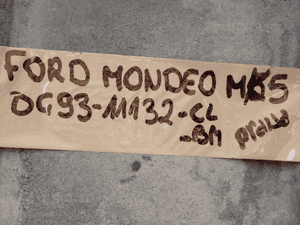 FORD MONDEO MK5
DG93-11132-CL
-BM prawa